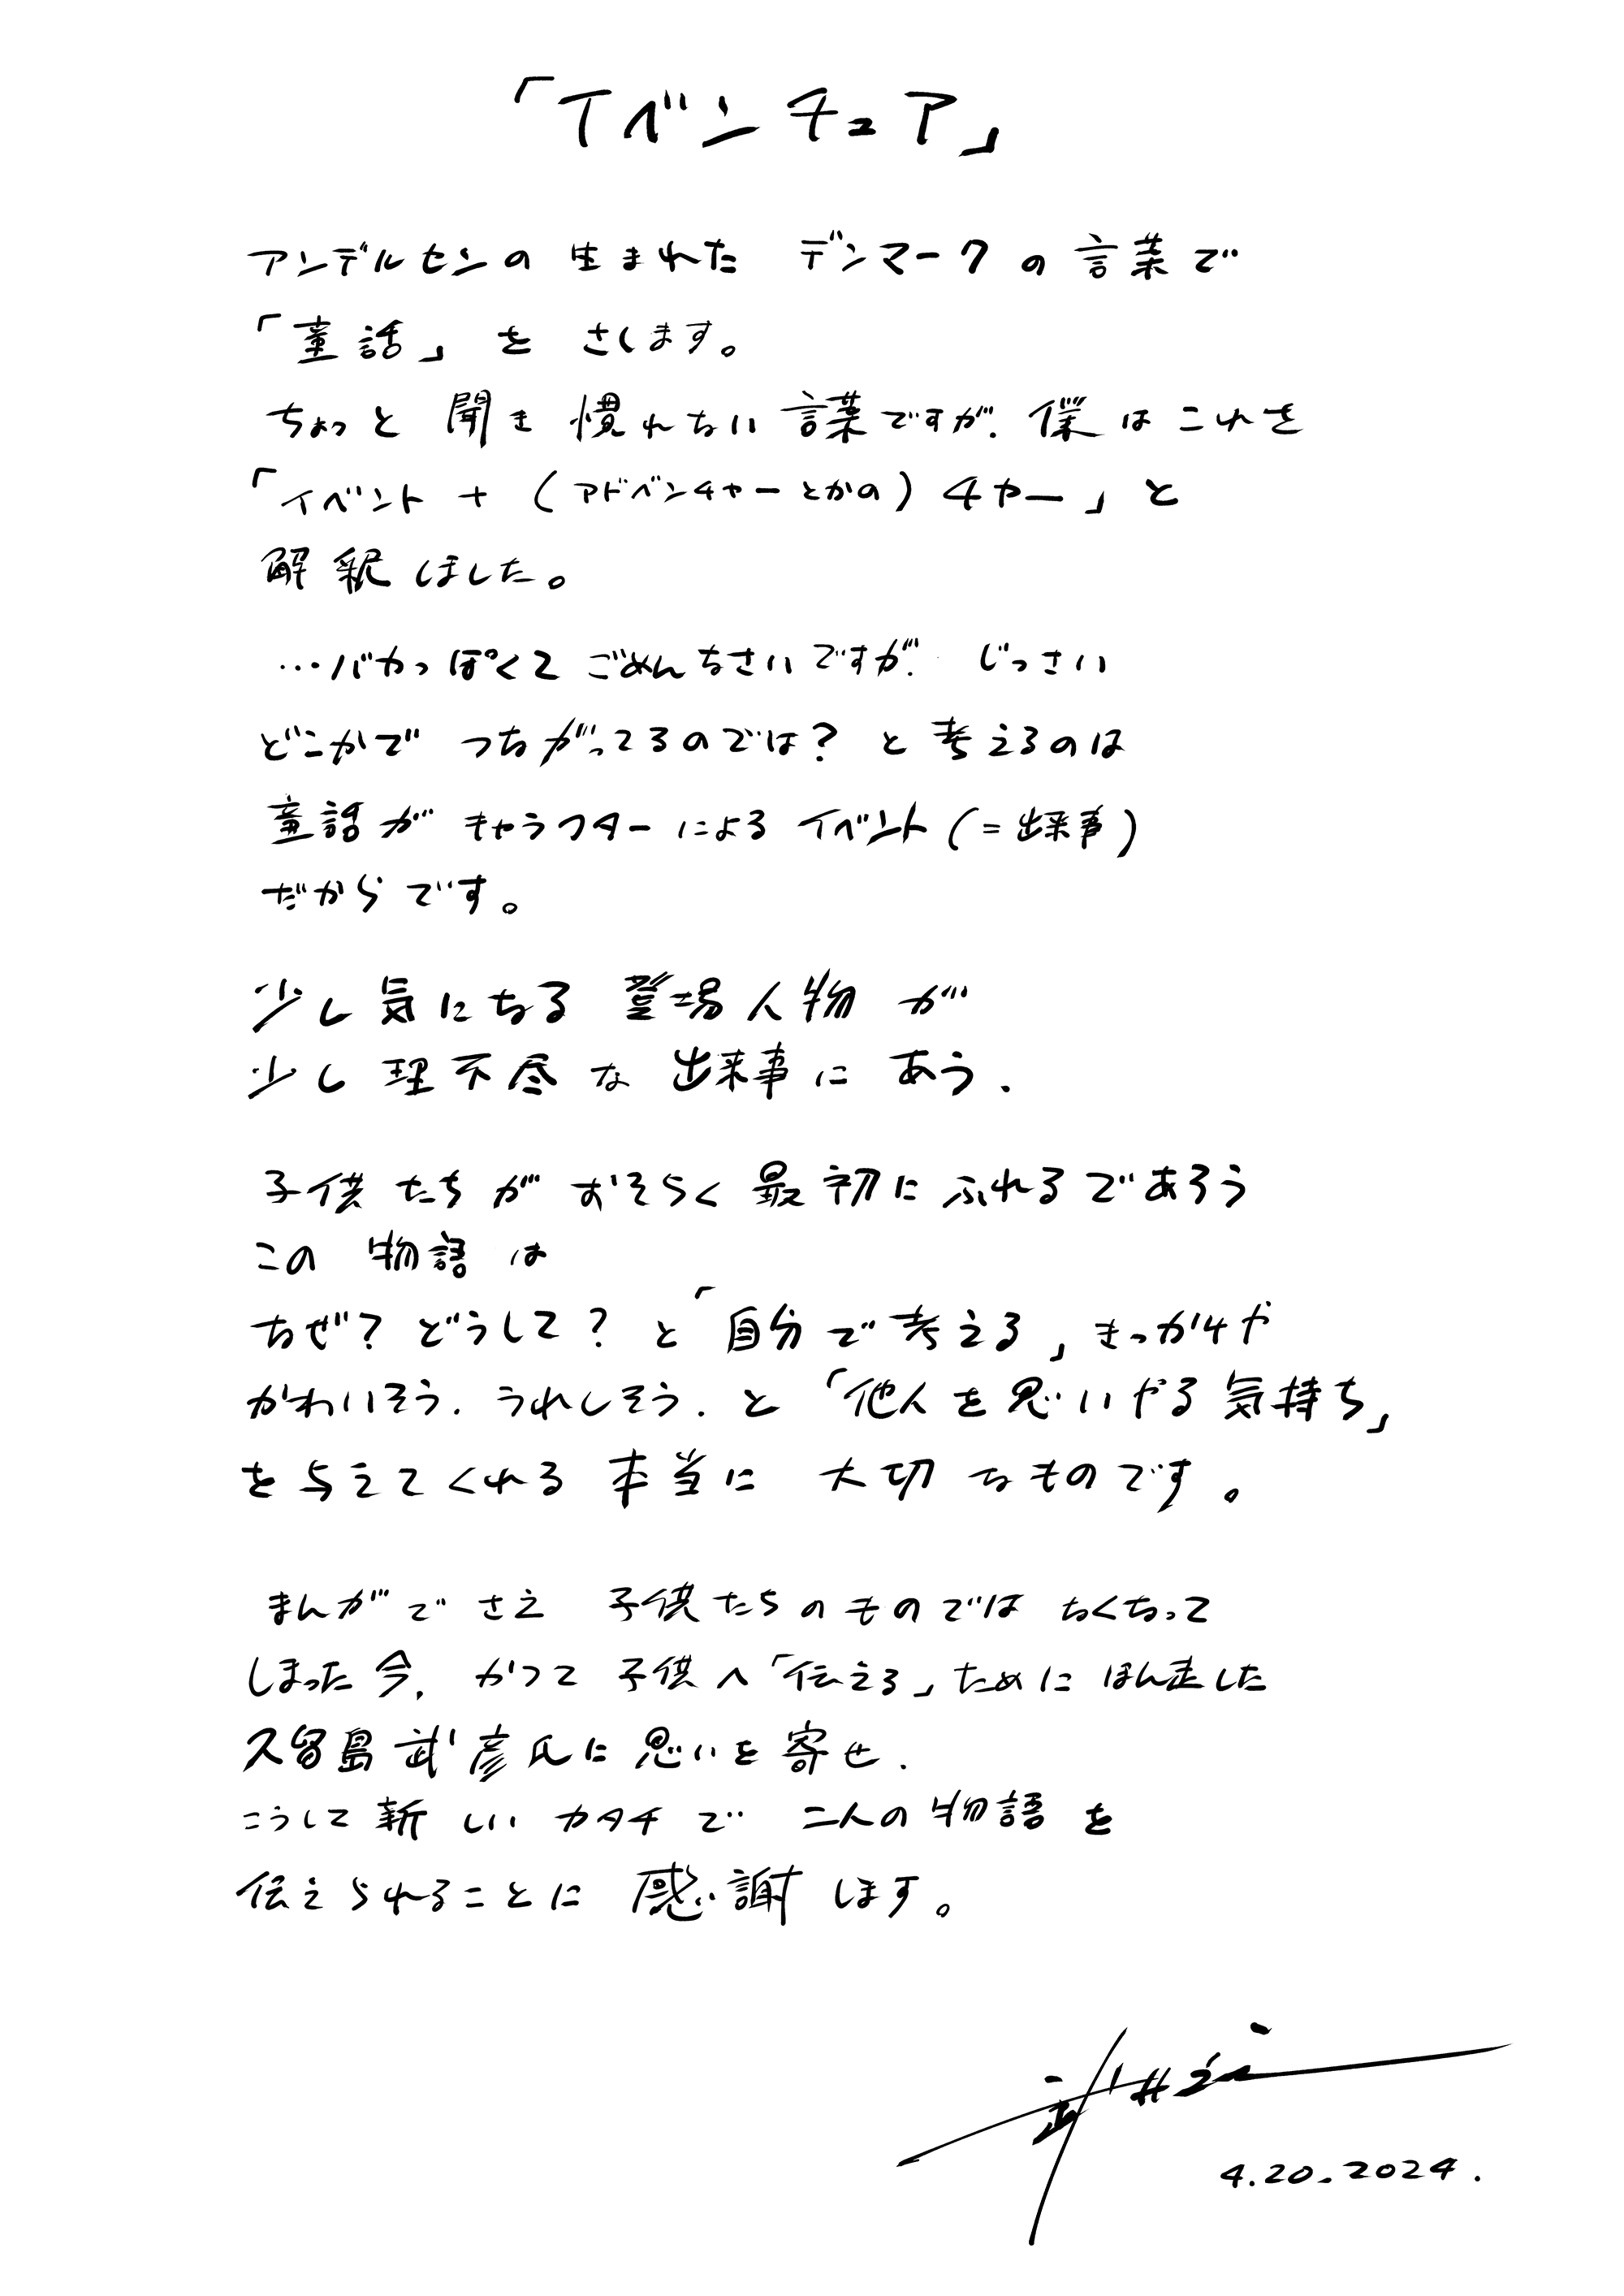 「イベンチュア」
アンデルセンの 生まれた デンマークの言葉で
「童話」を さします。
ちょっと 聞き慣れない言葉ですが、僕はこれを
「イベント + (アドベンチャーとかの) チャー」と
解釈しました。
…バカっぽくて ごめんなさいですが、じっさい
どこかで つながってるのでは? と考えるのは
童話が キャラクターによる イベント(=出来事)
だからです。
少し気になる 登場人物 が
少し理不尽な 出来事に あう、
子供たちが おそらく 最初に ふれるであろう
この 物語 は
なぜ? どうして? と「自分で考える」きっかけや
かわいそう、うれしそう、と「他人を思いやる気持ち」
を与えてくれる 本当に 大切なものです。
まんがでさえ 子供たちのものでは なくなって
しまった今、かつて 子供へ「伝える」ためにほん走した
久留島武彦氏に思いを寄せ、
こうして新しい カタチで 二人の物語を
伝えられることに 感謝します。
武井
4.20.2024.